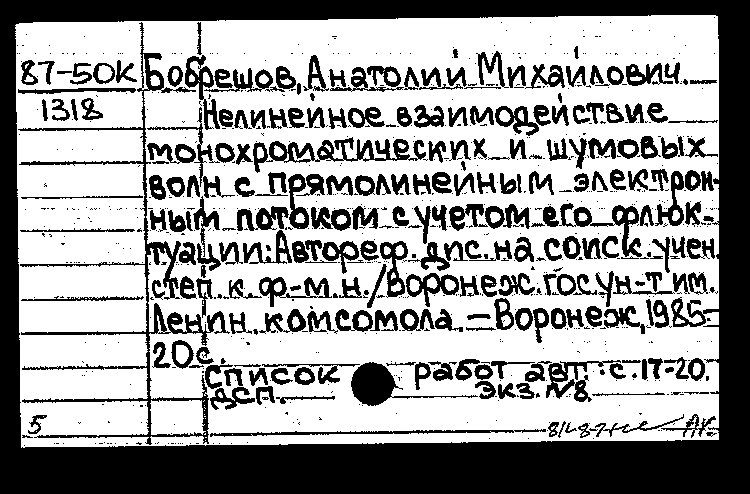 87-50К Бобрешов, Анатолий Михайлович.
1318 Нелинейное взаимодействие
монохроматических и шумовых
волн с прямолинейным электрон-
ным потоком с учетом его флюк-
туации: Автореф. дис. на соиск. учен.
степ. к. ф.-м. н. / Воронеж. гос. ун-т им.
Ленин. комсомола. — Воронеж, 1985-
20 с.
Список работ авт.: с. 17-20.
ДСП. Экз. №8
5